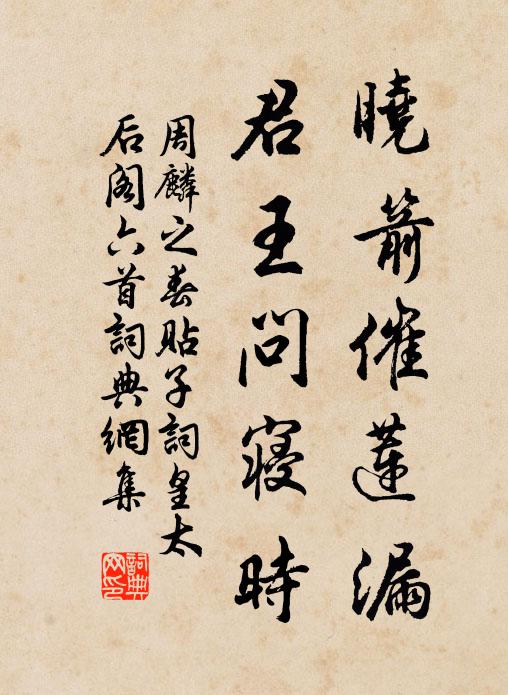 曉箭催蓮漏
君王問寢時
周麟之春貼子詞皇太
后閣六首詞典網集
詞典
网印